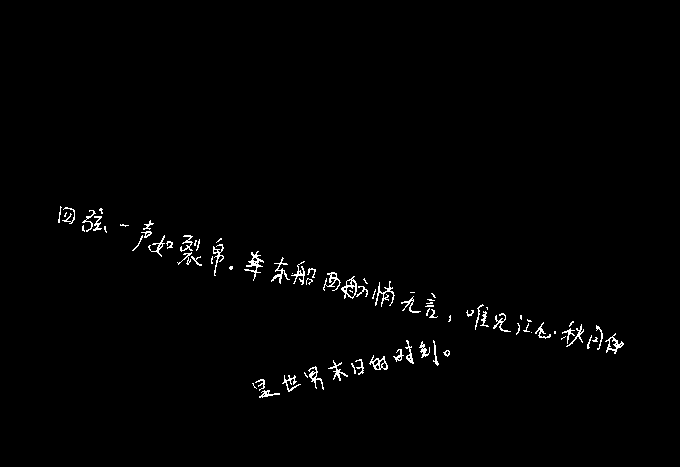 四弦一声如裂帛。東东船西舫悄无言，唯见江心秋月白
是世界末日的时刻。